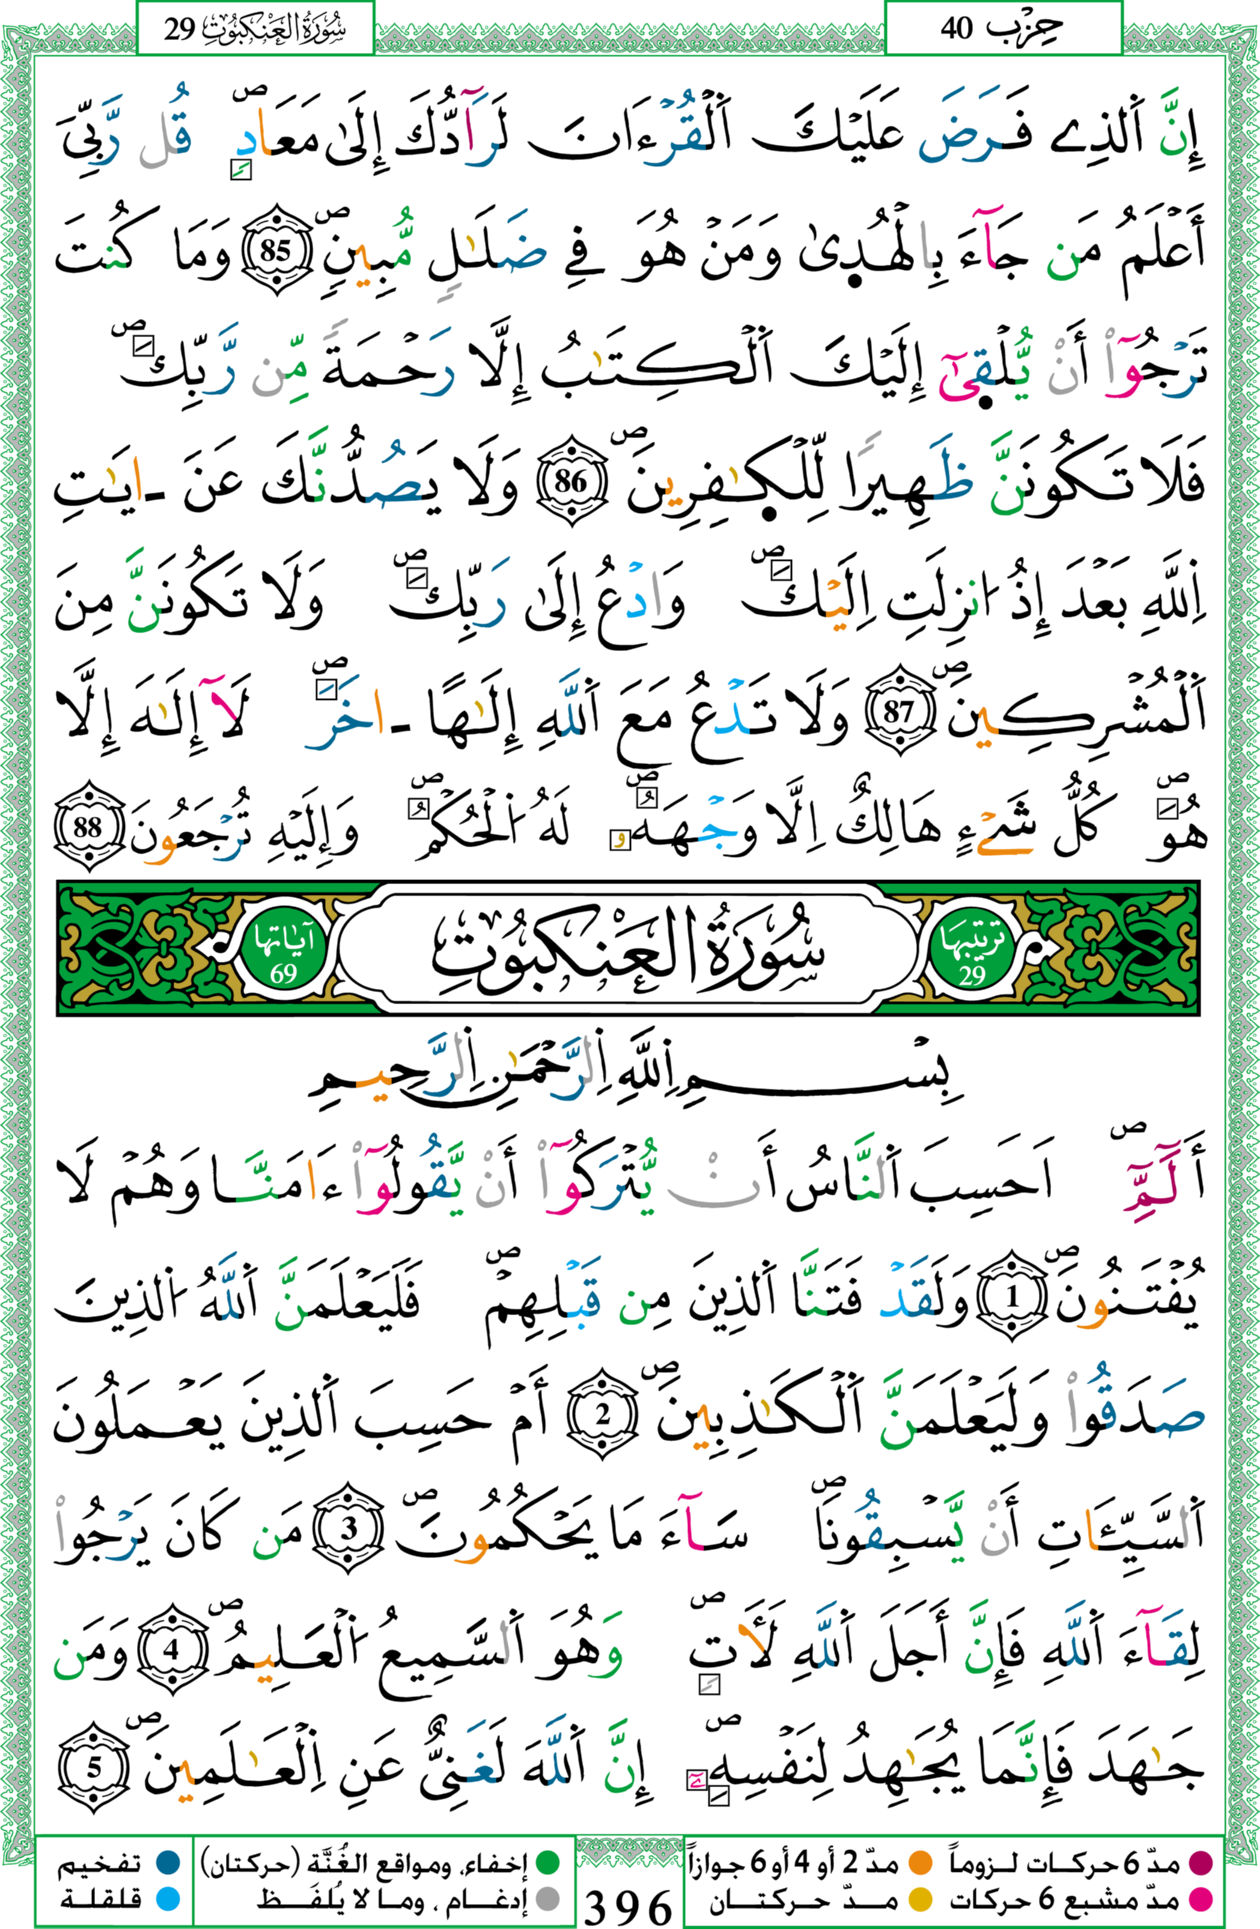 حِزْب 40
سُورَةُ العَنكَبُوتِ 29
إِنَّ اَ۬لذِے فَرَضَ عَلَيْكَ اَ۬لْقُرْءَانَ لَرَآدُّكَ إِلَىٰ مَعَادٖۖ قُل رَّبِّيَ
أَعْلَمُ مَن جَآءَ بِالْهُد۪ىٰ وَمَنْ هُوَ فِے ضَلَٰلٖ مُّبِينٖۖ 85 وَمَا كُنتَ
تَرْجُوٓاْ أَنْ يُّلْق۪ىٰٓ إِلَيْكَ اَ۬لْكِتَٰبُ إِلَّا رَحْمَةٗ مِّن رَّبِّكَۖ
فَلَا تَكُونَنَّ ظَهِيراٗ لِّلْكٰ۪فِرِينَۖ 86 وَلَا يَصُدُّنَّكَ عَنَ اٰيَٰتِ
اِ۬للَّهِ بَعْدَ إِذُ ا۟نزِلَتِ اِلَيْكَۖ وَادْعُ إِلَىٰ رَبِّكَۖ وَلَا تَكُونَنَّ مِنَ
اَ۬لْمُشْرِكِينَۖ 87 وَلَا تَدْعُ مَعَ اَ۬للَّهِ إِلَٰهاً اٰخَرَۖ لَآ إِلَٰهَ إِلَّا
هُوَۖ كُلُّ شَےْءٍ هَالِكٌ اِلَّا وَجْهَهُۥۖ لَهُ اُ۬لْحُكْمُۖ وَإِلَيْهِ تُرْجَعُونَ 88
تَرتيبُها 29
سُورَةُ العَنكَبُوتِ
آيَاتها 69
بِسْمِ اِ۬للَّهِ اِ۬لرَّحْمَٰنِ اِ۬لرَّحِيمِ
أَلَٓمِّٓۖ اَحَسِبَ اَ۬لنَّاسُ أَنْ يُّتْرَكُوٓاْ أَنْ يَّقُولُوٓاْ ءَامَنَّا وَهُمْ لَا
يُفْتَنُونَۖ 1 وَلَقَدْ فَتَنَّا اَ۬لذِينَ مِن قَبْلِهِمْۖ فَلَيَعْلَمَنَّ اَ۬للَّهُ اُ۬لذِينَ
صَدَقُواْ وَلَيَعْلَمَنَّ اَ۬لْكَٰذِبِينَۖ 2 أَمْ حَسِبَ اَ۬لذِينَ يَعْمَلُونَ
اَ۬لسَّيِّـَٔاتِ أَنْ يَّسْبِقُونَاۖ سَآءَ مَا يَحْكُمُونَۖ 3 مَن كَانَ يَرْجُواْ
لِقَآءَ اَ۬للَّهِ فَإِنَّ أَجَلَ اَ۬للَّهِ لَأٓتٖۖ وَهُوَ اَ۬لسَّمِيعُ اُ۬لْعَلِيمُۖ 4 وَمَن
جَٰهَدَ فَإِنَّمَا يُجَٰهِدُ لِنَفْسِهِۦٓۖ إِنَّ اَ۬للَّهَ لَغَنِيٌّ عَنِ اِ۬لْعَٰلَمِينَۖ 5
مدّ 6 حركات لزوماً
مدّ 2 أو 4 أو 6 جوازاً
مدّ مشبع 6 حركات
مدّ حركتان
396
إخفاء، ومواقع الغُنَّة (حركتان)
إدغام ، وما لا يُلفَظ
تفخيم
قلقلة